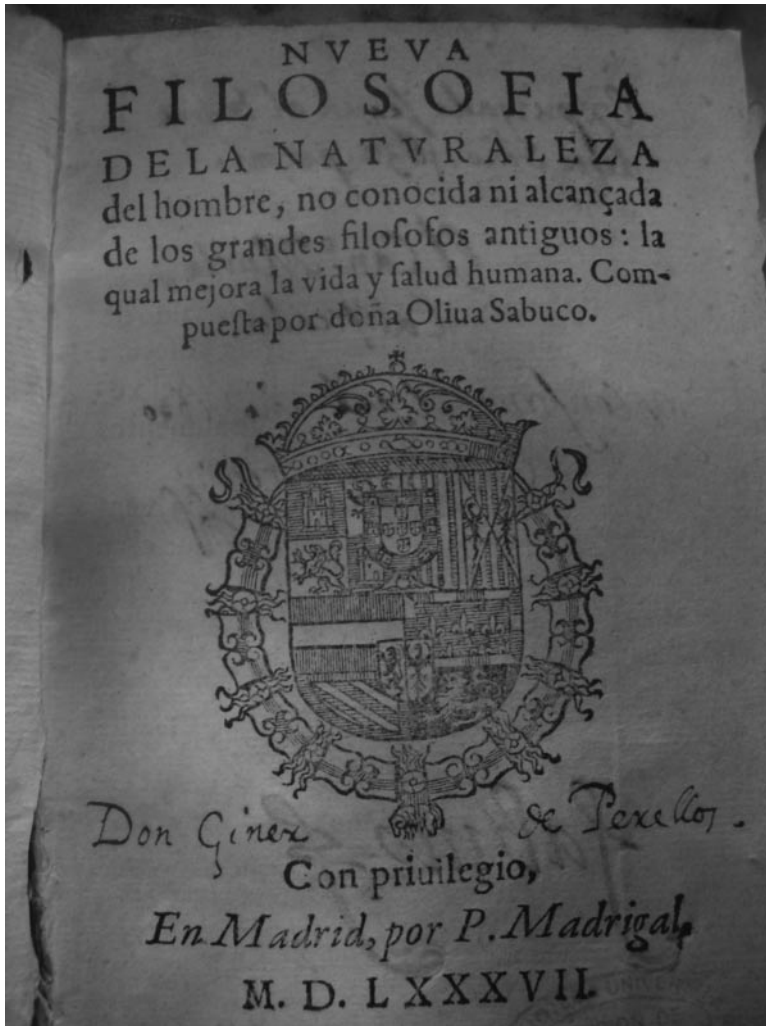 NVEVA
FILOSOFIA
DELA NATVRALEZA
del hombre, no conocida ni alcançada
de los grandes filoſofos antiguos: la
qual mejora la vida y ſalud humana. Com-
pueſta por doña Oliua Sabuco.
Don Giner de Perellos.
Con priuilegio,
En Madrid, por P. Madrigal,
M. D. LXXXVII.